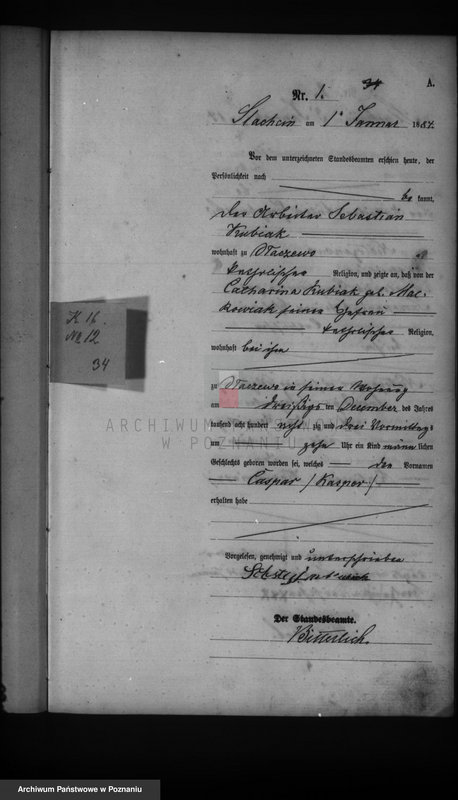 34 A.
Nr. 1.
am 1ᵉ Januar 1884.
Vor dem unterzeichneten Standesbeamten erschien heute, der
Persönlichkeit nach
be kannt,
der Arbeiter Sebastian
Kubiak
wohnhaft zu
katholischer Religion, und zeigte an, daß von der
Catharina Kubiak geb. Mac-
kowiak seiner Ehefrau
katholischer Religion,
wohnhaft bei ihm
K. 16
№ 12
34
zu in seiner Wohnung
am dreißigsten Dezember des Jahres
tausend acht hundert acht zig und drei Vormittags
um zehn Uhr ein Kind männ lichen
Geschlechts geboren worden sei, welches den Vornamen
Caspar /Kasper/
erhalten habe
ARCHIWUM PAŃSTWOWE
W POZNANIU
Vorgelesen, genehmigt und unterschrieben
Der Standesbeamte.
Bitterlich.
Archiwum Państwowe w Poznaniu